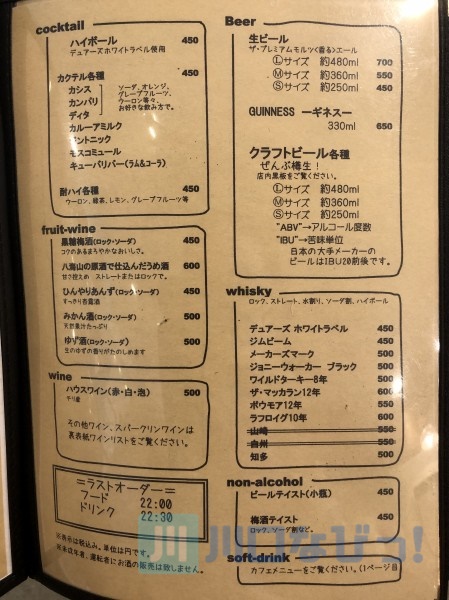 cocktail
ハイボール 450
デュアーズホワイトラベル使用
カクテル各種 450
カシス
カンパリ
ディタ
ソーダ、オレンジ、
グレープフルーツ、
ウーロン等々、
お好きな飲み方で。
カルーアミルク
ジントニック
モスコミュール
キューバリバー(ラム&コーラ)
酎ハイ各種 450
ウーロン、緑茶、レモン、グレープフルーツ等
fruit-wine
黒糖梅酒(ロック・ソーダ) 450
コクのあるまろやかなおいしさ。
八海山の原酒で仕込んだうめ酒 600
甘さ控えめ ストレートまたはロックで。
ひんやりあんず(ロック・ソーダ) 450
すっきり杏露酒
みかん酒(ロック・ソーダ) 500
天然果汁たっぷり
ゆず酒(ロック・ソーダ) 500
生のゆずの香りがたのしめます
wine
ハウスワイン(赤・白・泡) 500
チリ産
その他ワイン、スパークリンワインは
裏表紙ワインリストをご覧ください。
=ラストオーダー=
フード 22:00
ドリンク 22:30
※表示は税込み。単位は円です。
※未成年者、運転者にお酒の販売は致しません。
Beer
生ビール
ザ・プレミアムモルツ<香る>エール
Ⓛサイズ 約480ml 700
Ⓜサイズ 約360ml 550
Ⓢサイズ 約250ml 450
GUINNESS ーギネスー
330ml 650
クラフトビール各種
ぜんぶ樽生!
店内黒板をご覧ください。
Ⓛサイズ 約480ml
Ⓜサイズ 約360ml
Ⓢサイズ 約250ml
"ABV"→アルコール度数
"IBU"→苦味単位
日本の大手メーカーの
ビールはIBU20前後です。
whisky
ロック、ストレート、水割り、ソーダ割、ハイボール
デュアーズ ホワイトラベル 450
ジムビーム 450
メーカーズマーク 500
ジョニーウォーカー ブラック 500
ワイルドターキー8年 500
ザ・マッカラン12年 600
ボウモア12年 550
ラフロイグ10年 600
山崎 550
白州 550
知多 500
non-alcohol
ビールテイスト(小瓶) 450
梅酒テイスト 450
ロック、ソーダ割など。
soft-drink
カフェメニューをご覧ください。(1ページ目